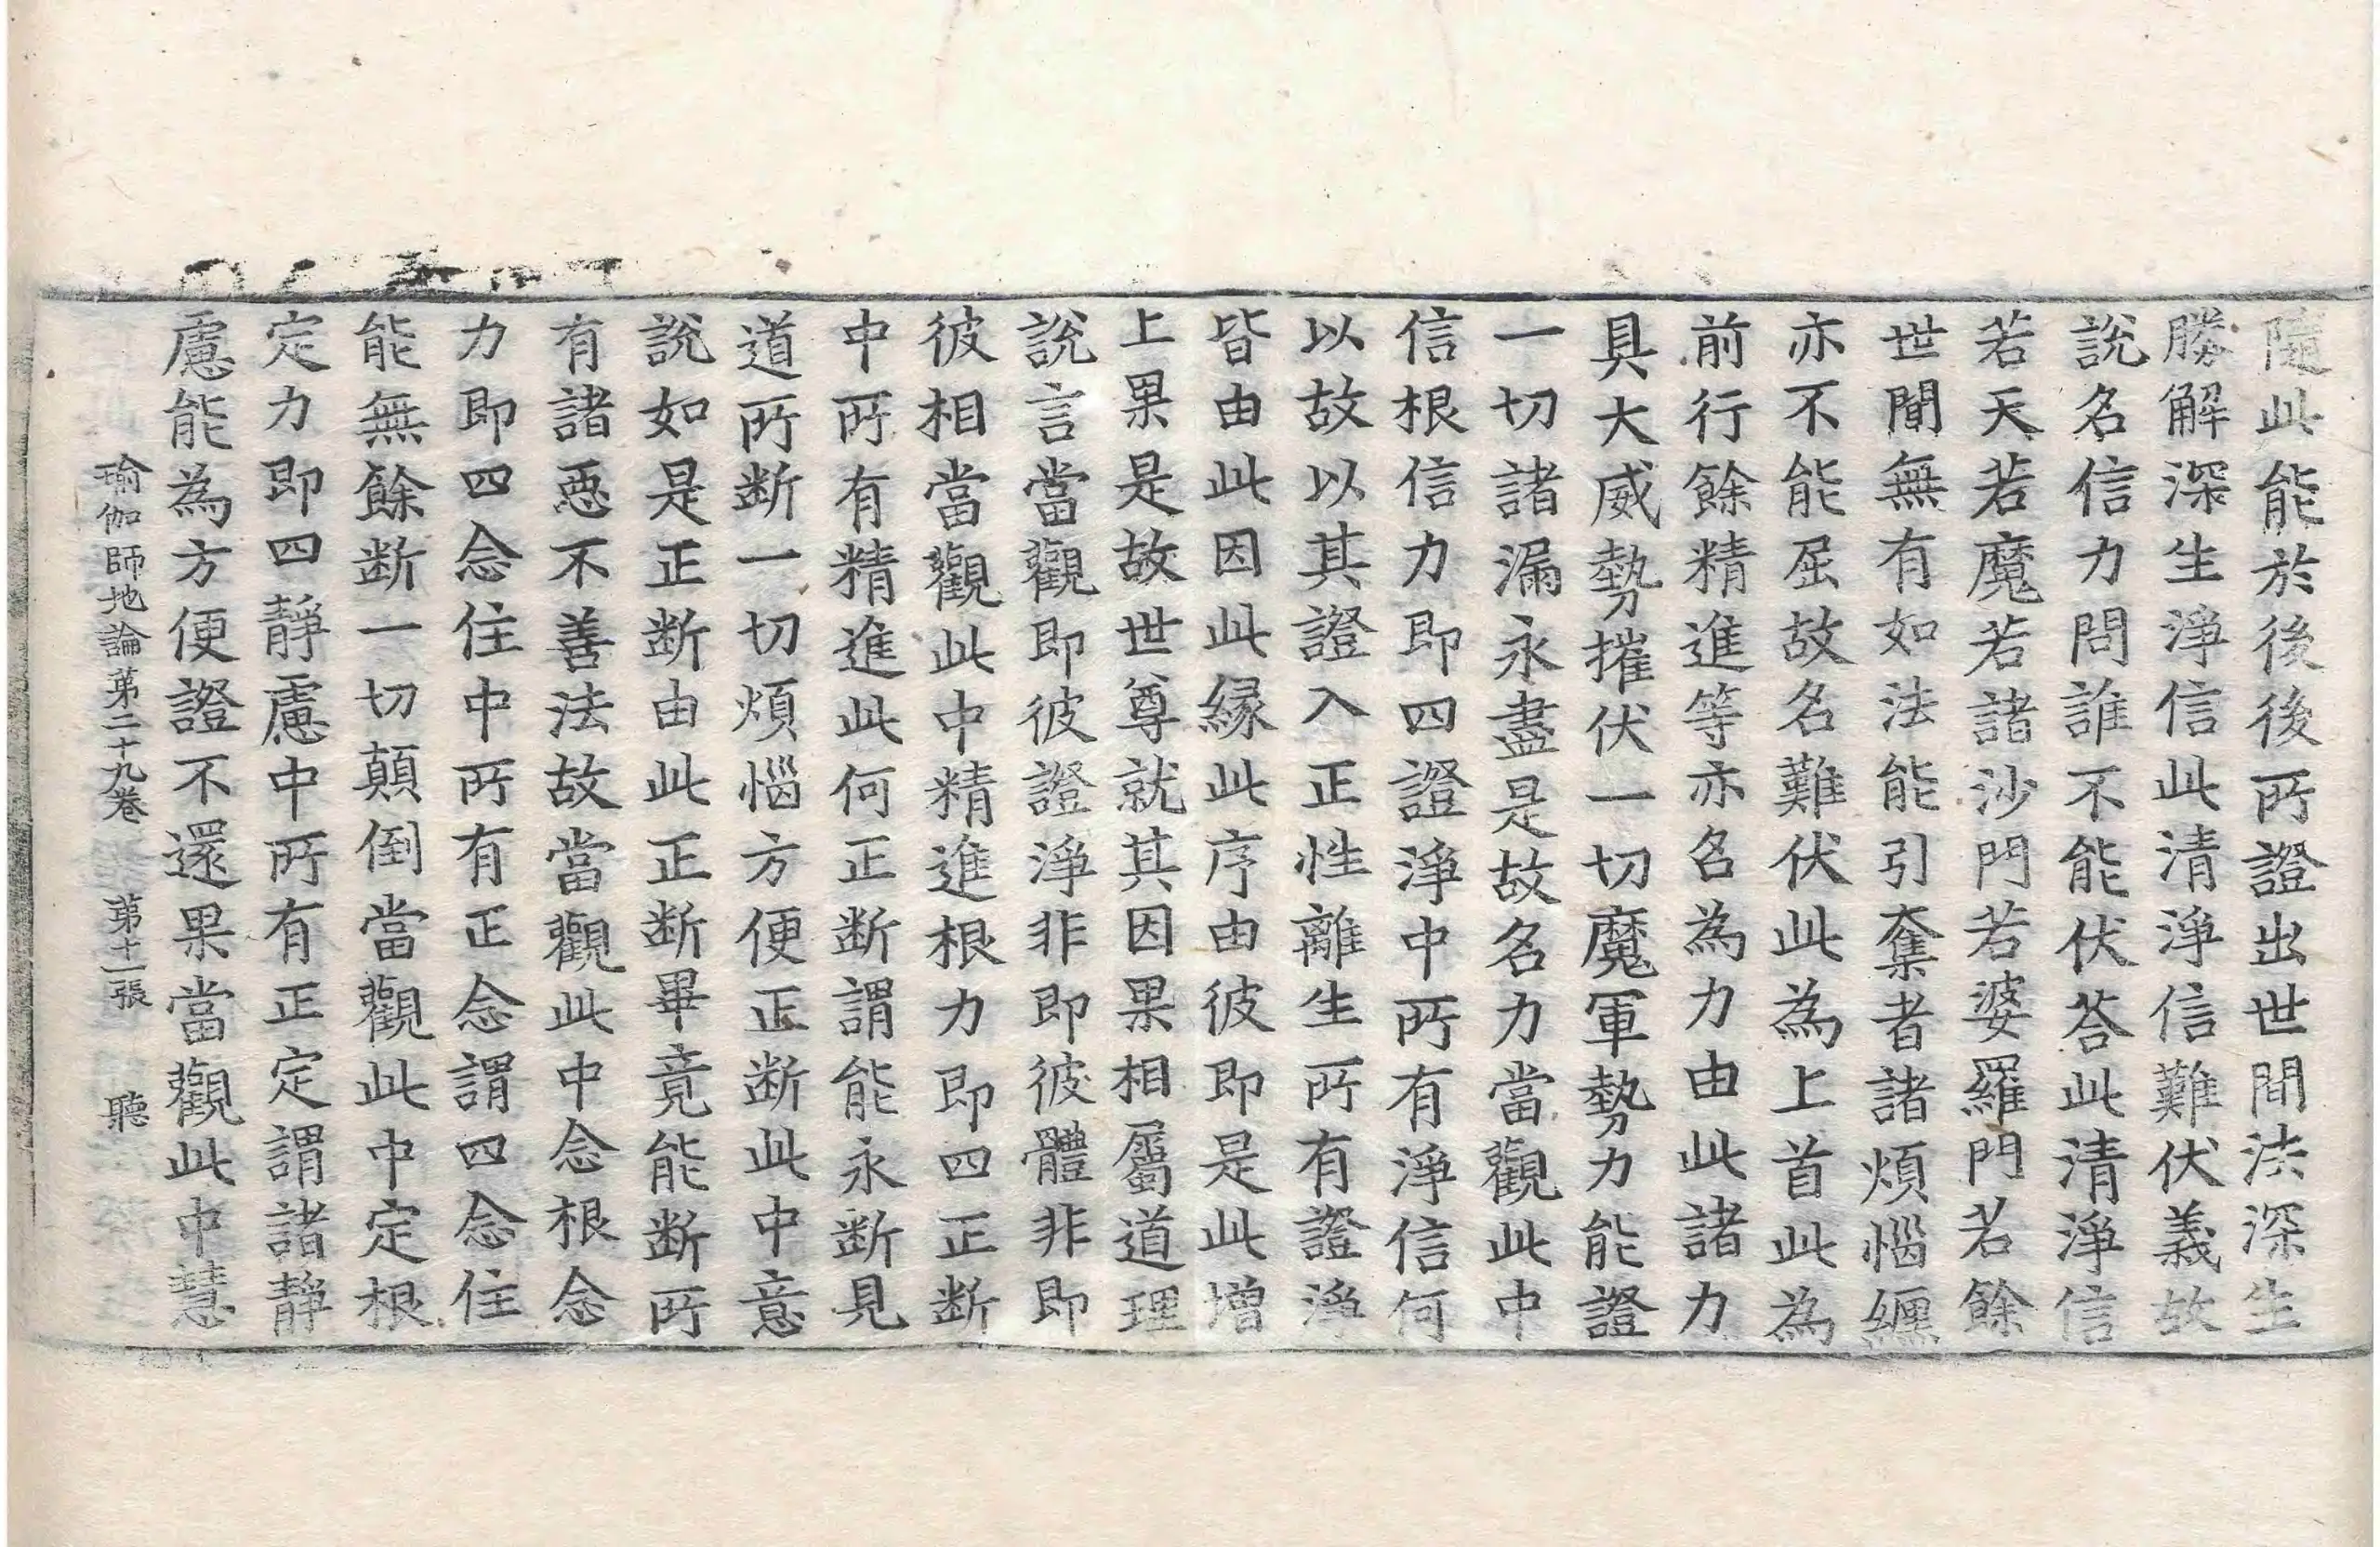 隨此能於後後所證出世間法深生
勝解深生淨信此清淨信難伏義故
說名信力問誰不能伏荅此清淨信
若天若魔若諸沙門若婆羅門若餘
世間無有如法能引奪者諸煩惱纏
亦不能屈故名難伏此為上首此為
前行餘精進等亦名為力由此諸力
具大威勢摧伏一切魔軍勢力能證
一切諸漏永盡是故名力當觀此中
信根信力即四證淨中所有淨信何
以故以其證入正性離生所有證淨
皆由此因此緣此序由彼即是此增
上果是故世尊就其因果相屬道理
說言當觀即彼證淨非即彼體非即
彼相當觀此中精進根力即四正斷
中所有精進此何正断謂能永断見
道所断一切煩惱方便正断此中意
說如是正断由此正断畢竟能断所
有諸惡不善法故當觀此中念根念
力即四念住中所有正念謂四念住
能無餘断一切顛倒當觀此中定根
定力即四靜慮中所有正定謂諸靜
慮能為方便證不還果當觀此中慧
瑜伽師地論苐二十九卷 苐十一張 聽